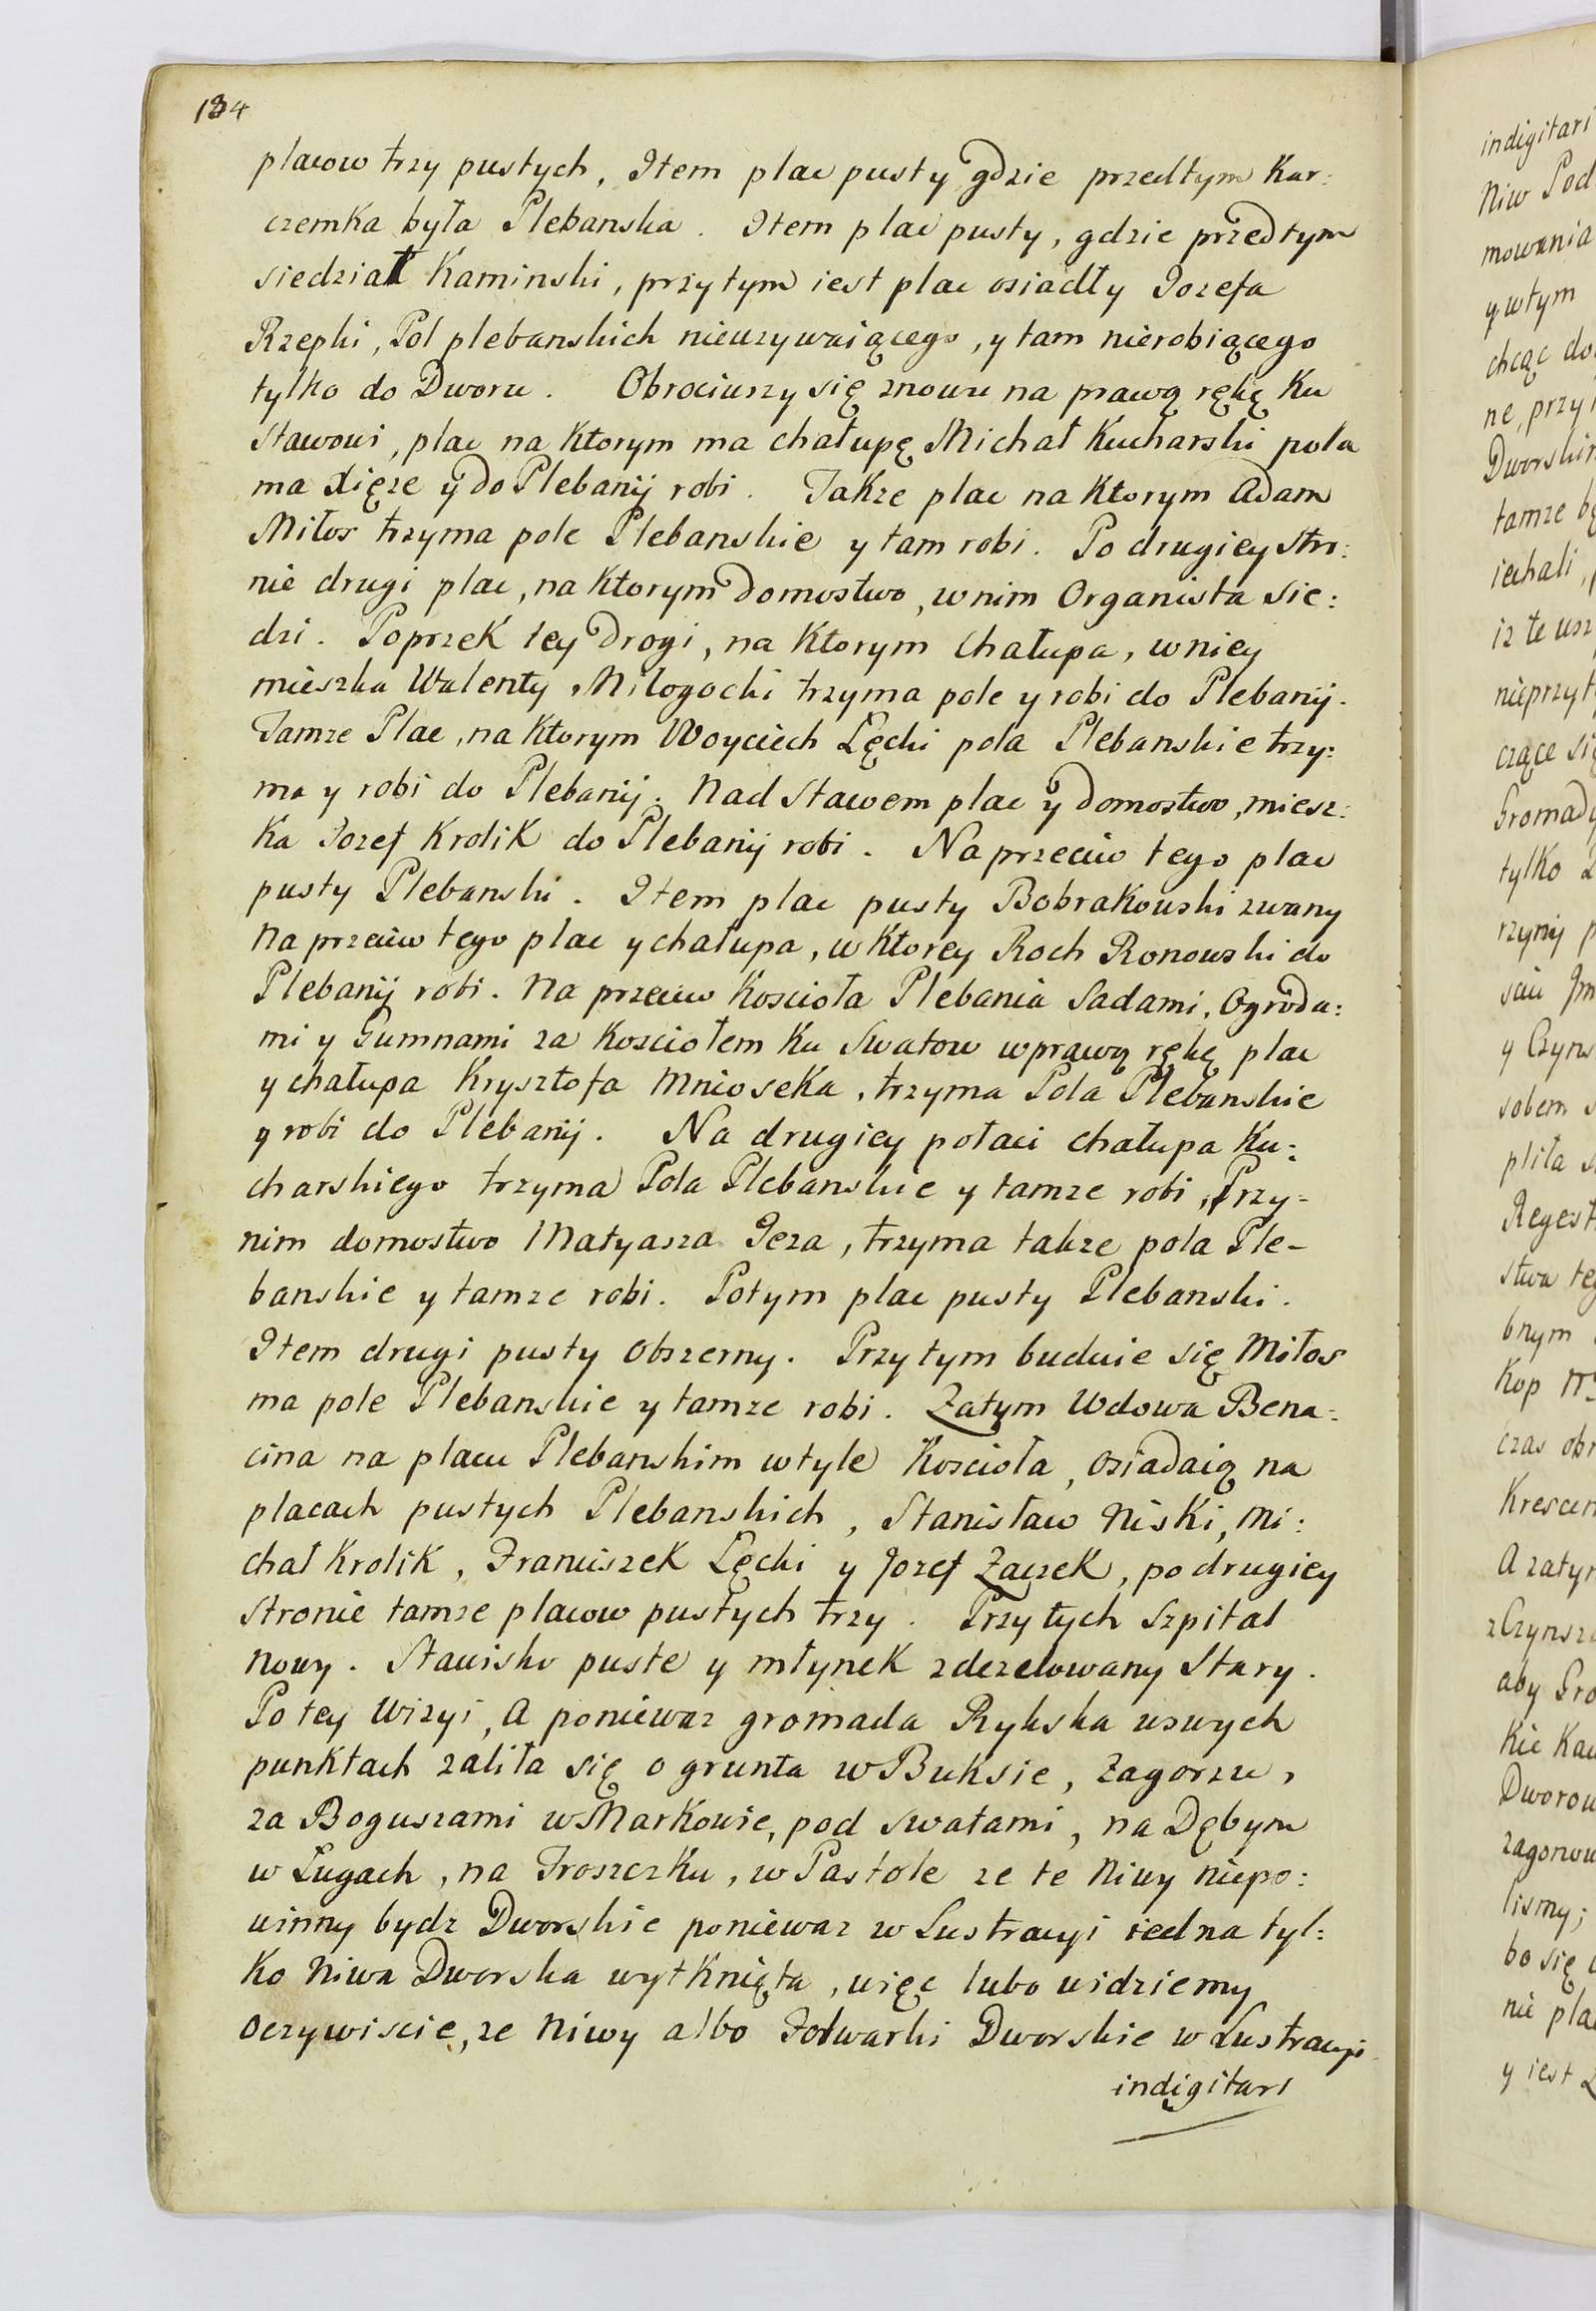 134
placow trzy pustych, Item plac pusty gdzie przedtym Kar:
czemka była Plebanska. Item plac pusty, gdzie przedtym
siedział Kaminski, przytym iest plac osiadły Jozefa
Rzepki, Pol plebanskich nieuzywaiącego, y tam nierobiącego
tylko do Dworu. Obrociwszy się znowu na prawą rękę Ku
Stawowi, plac na Ktorym ma chałupę Michał Kucharski pola
ma Xięze y do Plebanij robi. Takze plac na Ktorym Adam
Miłos trzyma pole Plebanskie y tam robi. Po drugiey stro:
nie drugi plac, na Ktorym domostwo, wnim Organista sie:
dzi. Poprzek tey Drogi, na Ktorym Chałupa, wniey
mieszka Walenty Miłogocki trzyma pole y robi do Plebanij.
Tamze Plac, na Ktorym Woyciech Łęcki pola Plebanskie trzy:
ma y robi do Plebanij. Nad Stawem plac y domostwo, miesz:
Ka Jozef Krolik do Plebanij robi. Na przeciw tego plac
pusty Plebanski. Item plac pusty Bobrakowski zwany
Na przeciw tego plac y chałupa, w Ktorey Roch Ronowski do
Plebanij robi. Na przeciw Koscioła Plebania Sadami, Ogroda:
mi y Gumnami za Kosciołem Ku Swatow wprawą rękę plac
y chałupa Krysztofa Mnioseka, trzyma Pola Plebanskie
y robi do Plebanij. Na drugiey połaci chałupa Ku:
charskiego trzyma Pola Plebanskie y tamze robi, Przy=
nim domostwo Matyasza Jeza, trzyma takze pola Ple-
banskie y tamze robi. Potym plac pusty Plebanski.
Item drugi pusty Obszerny. Przytym buduie się Miłos
ma pole Plebanskie y tamze robi. Zatym Wdowa Bena:
cina na placu Plebanskim wtyle Koscioła, Osiadaią na
placach pustych Plebanskich, Stanisław Niski, Mi:
chał Krolik, Franciszek Łęcki y Jozef Zaczek, po drugiey
stronie tamze placow pustych trzy. Przytych Szpital
Nowy. Stawisko puste y młynek zdezelowany Stary.
Po tey Wizyi, A poniewaz gromada Rykska wswych
punktach zaliła się o grunta w Buksie, Zagorzu,
za Boguszami w Markowie, pod Swatami, na Dębym
w Ługach, na Troszczku, w Pastole ze te Niwy niepo:
winny bydz Dworskie poniewaz w Lustracyi iedna tyl:
Ko Niwa Dworska wytknięta, więc lubo widziemy
Oczywiscie, ze Niwy albo Folwarki Dworskie w Lustracyi
indigitari
indigitari
Niw Pod
mowania
y wtym
chcąc do
ne, przy
tylko